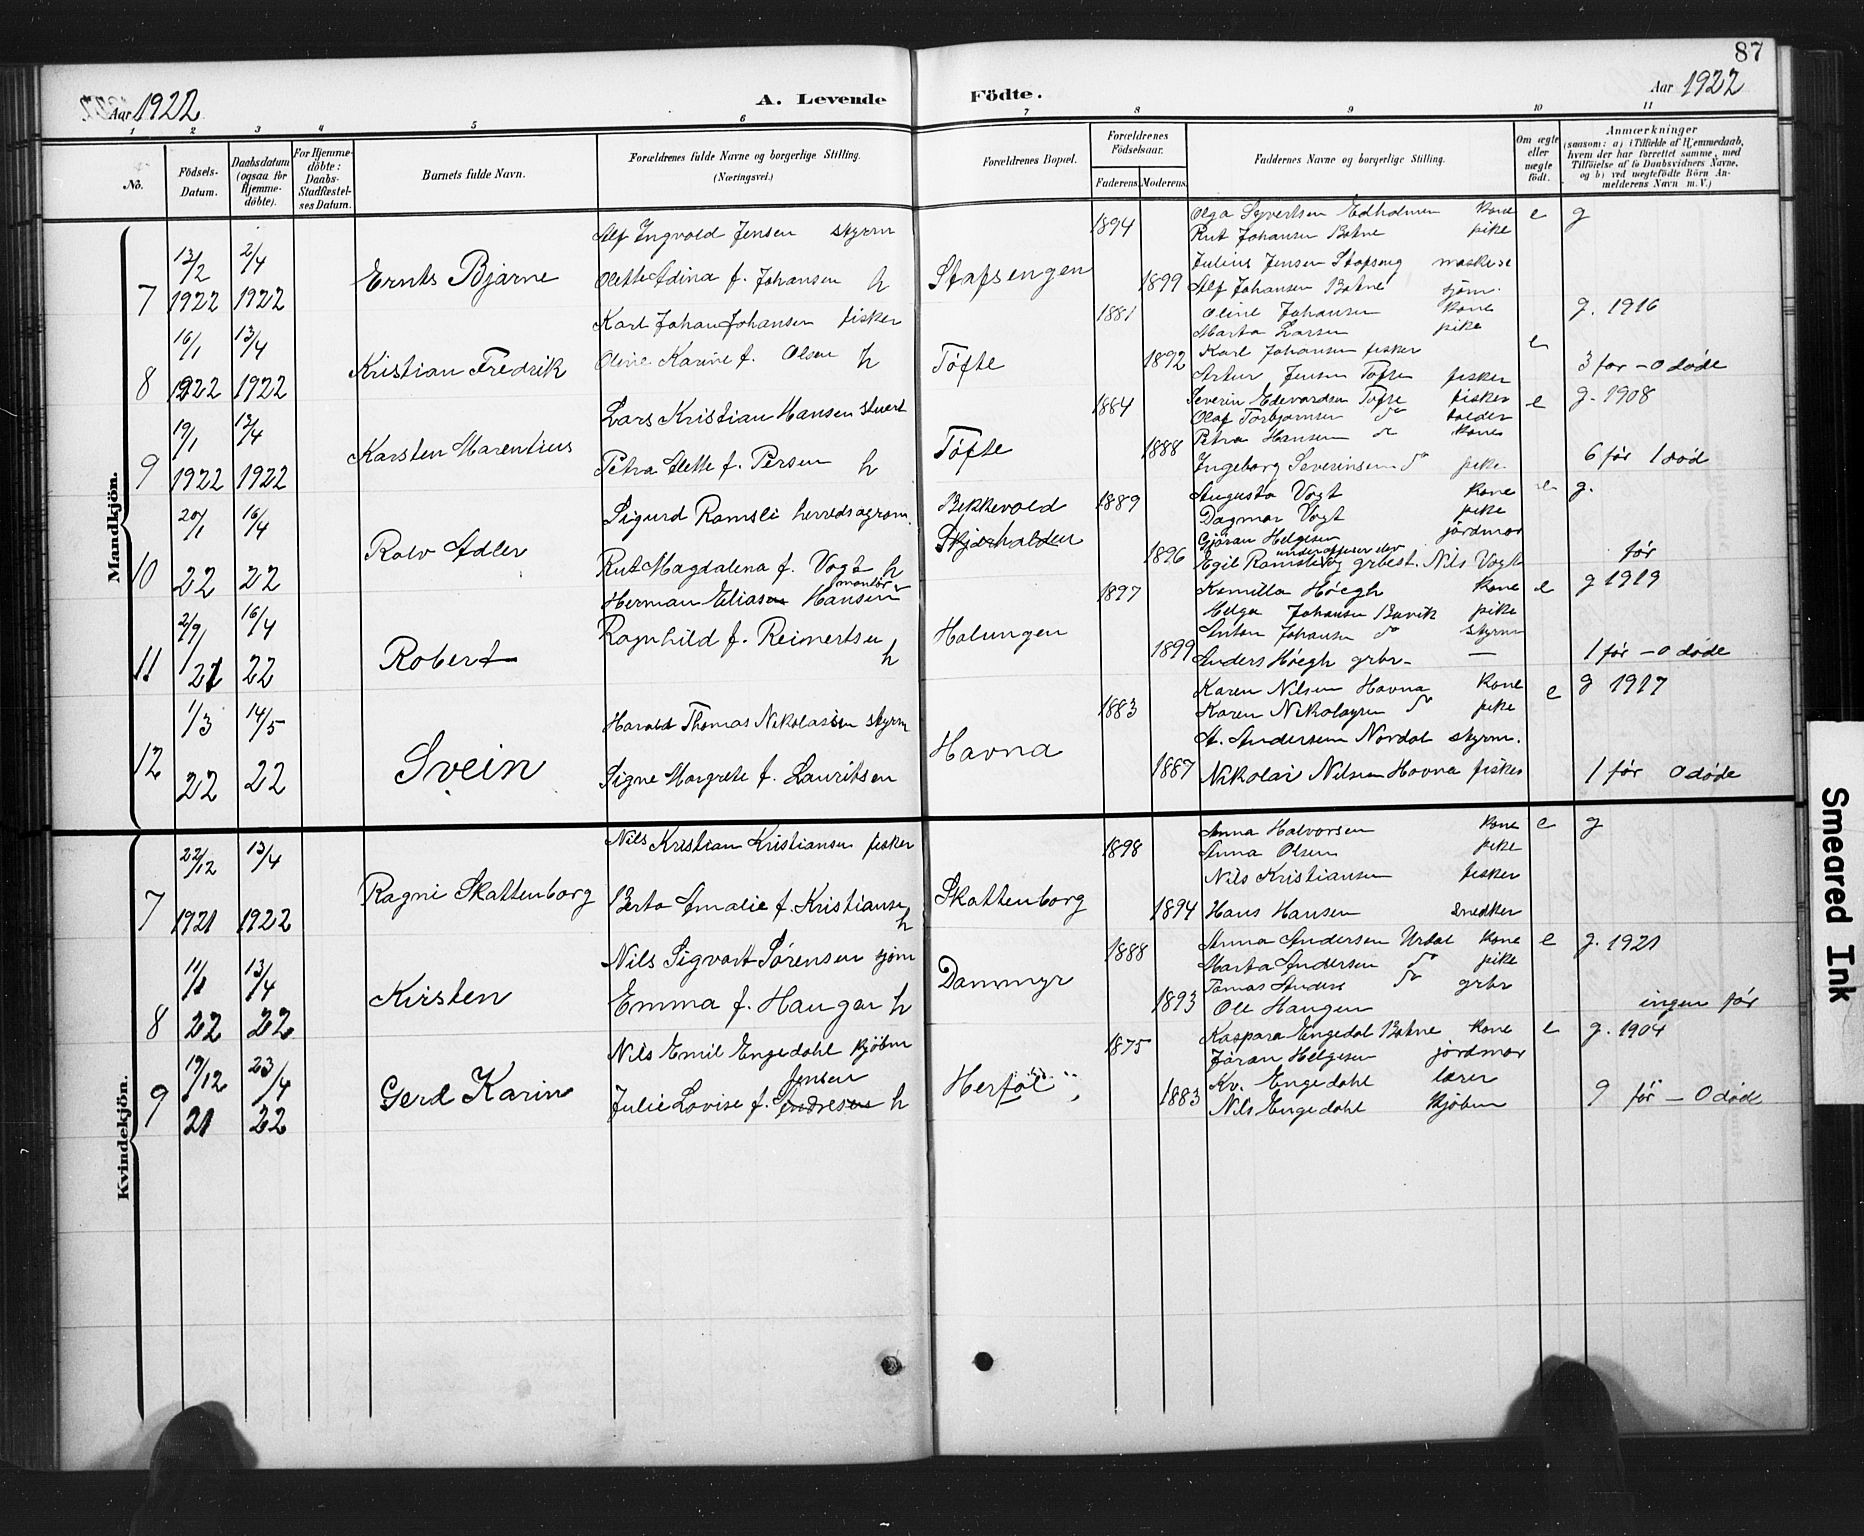 87
Aar 1922 A. Levende Födte. Aar 1922
1 2 3 4 5 6 7 8 9 10 11
No.
Födsels-
Datum.
Daabsdatum
(ogsaa for
Hjemme-
döbte).
For Hjemme-
döbte:
Daabs-
Stadfæstel-
ses Datum.
Barnets fulde Navn.
Forældrenes fulde Navne og borgerlige Stilling.
(Næringsvei.)
Forældrenes Bopæl.
Forældrenes
Födselsaar.
Faderens. Moderens.
Faddernes Navne og borgerlige Stilling.
Om ægte
eller
uægte
födt.
Anmærkninger
(saasom: a) i Tilfælde af Hjemmedaab,
hvem der har forrettet samme, med
Tilföielse af to Daabsvidners Navne,
og b) ved uægtefödte Börn An-
melderens Navn m. V.)
Mandkjön.
7
13/2
1922
2/4
1922
Ernts Bjarne
Alf Ingvold Jensen styrm
Olette Adina f. Johansen h
Stafsengen
1894
1899
Olga Syvertsen Edholmen kone
Rut Johansen Botne pike
Julius Jensen Stafseng
Alf Johansen Botne sjøm.
e
g
8
16/1
1922
13/4
1922
Kristian Fredrik
Karl Johan Johansen fisker
Oline Karine f. Olsen h
Tøfte
1881
1892
Oline Johansen kone
Marta Larsen pike
Karl Johansen fisker
Artur Jensen Tøfte fisker
e
g. 1916
3 før - 0 døde
9
19/1
1922
13/4
1922
Karsten Marentius
Lars Kristian Hansen stuert
Petra Elette f. Persen h
Tøfte
1884
1888
Severin Edevardsen Tofte fisker
Olaf Torbjørnsen do tolder
Petra Hansen do kone
Ingeborg Severinsen do pike
e
g. 1908
6 før 1 død
10
20/1
22
16/4
22
Rolv Adler
Sigurd Ramsli herredsagron.
Rut Magdalena f. Vogt h
Bekkevold
Skjærhalden
1889
1896
Augusta Vogt kone
Dagmar Vogt pike
Gjøran Helgesen jordmor
underofficer elev
Egil Ramsli og grbest. Nils Vogt
e
g.
før
11
2/9
21
16/4
22
Robert
montør
Herman Eliasen Hansen
Ragnhild f. Reinertsen h
Holungen
1897
1899
Kamilla Høegh kone
Helga Johansen Buvik pike
Anton Johansen do styrm
Anders Høegh grbr. —
e
g 1919
1 før - 0 døde
12
1/3
22
14/5
22
Svein
Harald Thomas Nikolaisen styrm
Signe Margrete f. Lauritsen
Havna
1883
1887
Karen Nilsen Havna kone
Karen Nikolaysen do pike
A. Andersen Nordal styrm.
Nikolai Nilsen Havna fisker
e
g 1917
1 før 0 døde
Kvindekjön.
7
22/12
1921
13/4
1922
Ragni Skattenborg
Nils Kristian Kristiansen fisker
Berta Amalie f. Kristiansen h
Skattenborg
1898
1894
Anna Halvorsen kone
Anna Olsen pike
Nils Kristiansen fisker
Hans Hansen snedker
e
g
8
11/1
22
13/4
22
Kirsten
Nils Sigvart Sørensen sjøm
Emma f. Haugen h
Dammyr
1888
1893
Anna Andersen Urdal kone
Marta Andersen do pike
Tomas Anders do grbr
Ole Haugen
e
g. 1921
ingen før
9
19/12
21
23/4
22
Gerd Karin
Nils Emil Engedahl kjøbm
Jensen
Julie Lovise f. Andresen h
Herføl
1875
1883
Kaspara Engedal Botne kone
Jøran Helgesen jordmor
Kr. Engedahl lærer
Nils Engedahl kjøbm
e
g. 1904
9 før - 0 døde
Smeared Ink